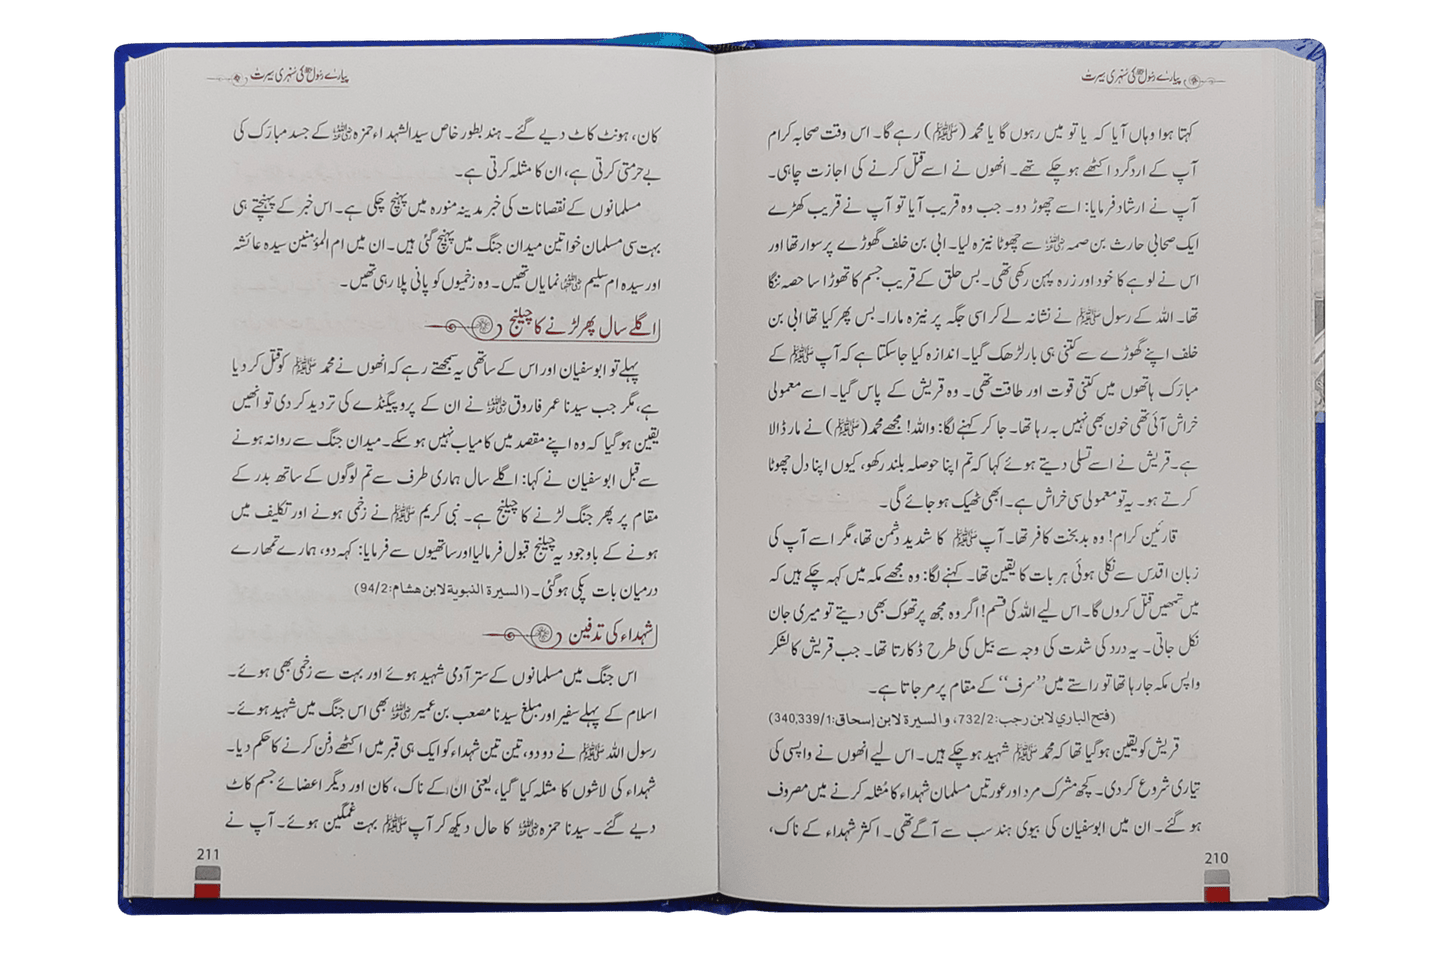 پیارے رسول ﷺ کی سنہری سیرت
کہتا ہوا وہاں آیا کہ یا تو میں رہوں گا یا محمد (ﷺ) رہے گا۔ اس وقت صحابہ کرام
آپ کے اردگرد اکٹھے ہوچکے تھے۔ انھوں نے اسے قتل کرنے کی اجازت چاہی۔
آپ نے ارشاد فرمایا: اسے چھوڑ دو۔ جب وہ قریب آیا تو آپ نے قریب کھڑے
ایک صحابی حارث بن صمہ ؓ سے چھوٹا نیزہ لیا۔ ابی بن خلف گھوڑے پر سوار تھا اور
اس نے لوہے کا خود اور زرہ پہن رکھی تھی۔ بس حلق کے قریب جسم کا تھوڑا سا حصہ ننگا
تھا۔ اللہ کے رسول ﷺ نے نشانہ لے کر اسی جگہ پر نیزہ مارا۔ بس پھر کیا تھا ابی بن
خلف اپنے گھوڑے سے کتنی ہی بار لڑھک گیا۔ اندازہ کیا جاسکتا ہے کہ آپ ﷺ کے
مبارک ہاتھوں میں کتنی قوت اور طاقت تھی۔ وہ قریش کے پاس گیا۔ اسے معمولی
خراش آئی تھی خون بھی نہیں بہ رہا تھا۔ جا کر کہنے لگا: واللہ! مجھے محمد (ﷺ) نے مار ڈالا
ہے۔ قریش نے اسے تسلی دیتے ہوئے کہا کہ تم اپنا حوصلہ بلند رکھو، کیوں اپنا دل چھوٹا
کرتے ہو۔ یہ تو معمولی سی خراش ہے۔ ابھی ٹھیک ہو جائے گی۔
قارئین کرام! وہ بدبخت کافر تھا۔ آپ ﷺ کا شدید دشمن تھا، مگر اسے آپ کی
زبان اقدس سے نکلی ہوئی ہر بات کا یقین تھا۔ کہنے لگا: وہ مجھے مکہ میں کہہ چکے ہیں کہ
میں تمھیں قتل کروں گا۔ اس لیے اللہ کی قسم! اگر وہ مجھ پر تھوک بھی دیتے تو میری جان
نکل جاتی۔ یہ درد کی شدت کی وجہ سے بیل کی طرح ڈکارتا تھا۔ جب قریش کا لشکر
واپس مکہ جا رہا تھا تو راستے میں ’’سرف‘‘ کے مقام پر مر جاتا ہے۔
(فتح الباري لابن رجب: 732/2، والسيرة لابن إسحاق: 340,339/1)
قریش کو یقین ہوگیا تھا کہ محمد ﷺ شہید ہوچکے ہیں۔ اس لیے انھوں نے واپسی کی
تیاری شروع کر دی۔ کچھ مشرک مرد اور عورتیں مسلمان شہداء کا مُثلہ کرنے میں مصروف
ہو گئے۔ ان میں ابوسفیان کی بیوی ہند سب سے آگے تھی۔ اکثر شہداء کے ناک،
210
پیارے رسول ﷺ کی سنہری سیرت
کان، ہونٹ کاٹ دیے گئے۔ ہند بطور خاص سیدالشہداء حمزہ ؓ کے جسد مبارک کی
بے حرمتی کرتی ہے، ان کا مثلہ کرتی ہے۔
مسلمانوں کے نقصانات کی خبر مدینہ منورہ میں پہنچ چکی ہے۔ اس خبر کے پہنچتے ہی
بہت سی مسلمان خواتین میدان جنگ میں پہنچ گئی ہیں۔ ان میں ام المؤمنین سیدہ عائشہ
اور سیدہ ام سلیم ؓ نمایاں تھیں۔ وہ زخمیوں کو پانی پلا رہی تھیں۔
اگلے سال پھر لڑنے کا چیلنج
پہلے تو ابوسفیان اور اس کے ساتھی یہ سمجھتے رہے کہ انھوں نے محمد ﷺ کو قتل کر دیا
ہے، مگر جب سیدنا عمر فاروق ؓ نے ان کے پروپیگنڈے کی تردید کر دی تو انھیں
یقین ہو گیا کہ وہ اپنے مقصد میں کامیاب نہیں ہو سکے۔ میدان جنگ سے روانہ ہونے
سے قبل ابوسفیان نے کہا: اگلے سال ہماری طرف سے تم لوگوں کے ساتھ بدر کے
مقام پر پھر جنگ لڑنے کا چیلنج ہے۔ نبی کریم ﷺ نے زخمی ہونے اور تکلیف میں
ہونے کے باوجود یہ چیلنج قبول فرمالیا اور ساتھیوں سے فرمایا: کہہ دو، ہمارے تمھارے
درمیان بات پکی ہوگئی۔ (السيرة النبوية لابن هشام: 94/2)
شہداء کی تدفین
اس جنگ میں مسلمانوں کے ستر آدمی شہید ہوئے اور بہت سے زخمی بھی ہوئے۔
اسلام کے پہلے سفیر اور مبلغ سیدنا مصعب بن عمیر ؓ بھی اس جنگ میں شہید ہوئے۔
رسول اللہ ﷺ نے دو دو، تین تین شہداء کو ایک ہی قبر میں اکٹھے دفن کرنے کا حکم دیا۔
شہداء کی لاشوں کا مثلہ کیا گیا، یعنی ان کے ناک، کان اور دیگر اعضائے جسم کاٹ
دیے گئے۔ سیدنا حمزہ ؓ کا حال دیکھ کر آپ ﷺ بہت غمگین ہوئے۔ آپ نے
211